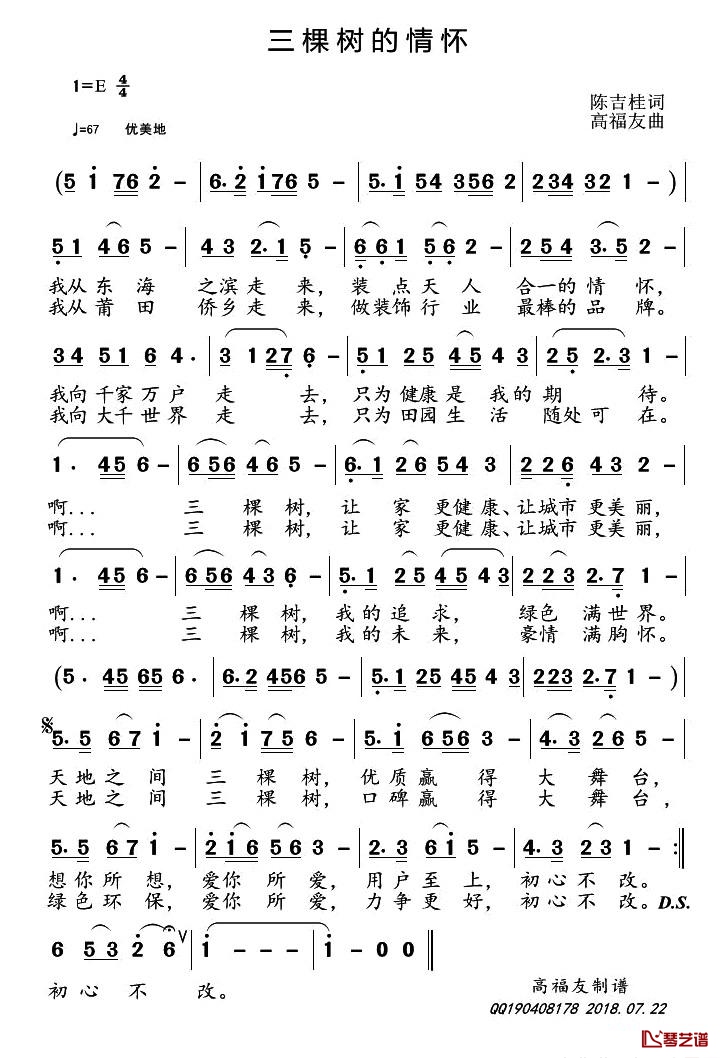 三棵树的情怀
1=E 4/4
陈吉桂词
♩=67 优美地
高福友曲
(5 1 76 2 - | 6. 2 176 5 - | 5. 1 54 356 2 | 234 32 1 - )|
51 465 2 - | 43 2.1 5 - | 661 56 2 - | 254 3.5 2 - |
我从东海 之滨走来，装点天人 合一的情怀，
我从莆田 侨乡走来，做装饰行业 最棒的品牌。
34 51 6 4. | 3 127 6 - | 51 25 454 3 | 25 2.3 1 - |
我向千家万户走 去，只为健康是 我的期 待。
我向大千世界走 去，只为田园生 活 随处可 在。
1. 45 6 - | 656 465 5 - | 6.1 26 54 3 | 226 43 2 - |
啊... 三 棵树，让 家 更健康、让城市更美丽，
啊... 三 棵树，让 家 更健康、让城市更美丽，
1. 45 6 - | 656 43 6 - | 5.1 25 45 43 | 223 2.7 1 - |
啊... 三 棵树，我的追求， 绿色 满世界。
啊... 三 棵树，我的未来， 豪情 满胸怀。
(5. 45 65 6. | 6.2 456 5 - | 5.1 25 45 3 | 223 2.7 1 - )|
5. 5 67 1 - | 2 1 75 6 - | 5. 1 66 56 - | 4.3 26 5 - |
天地之间 三 棵树，优质赢 得 大 舞台，
天地之间 三 棵树，口碑赢 得 大 舞台，
5. 5 67 1 - | 216 56 3 - | 2.3 61 5 - | 4.3 23 1 - :||
想你所想，爱你所爱，用户至上，初心不改。
绿色环保，爱你所爱，力争更好，初心不改。D.S.
6 53 2 6 V | 1 - - - | 1 - 0 0 ||
初心 不 改。
高福友制谱
QQ190408178 2018.07.22
琴艺谱